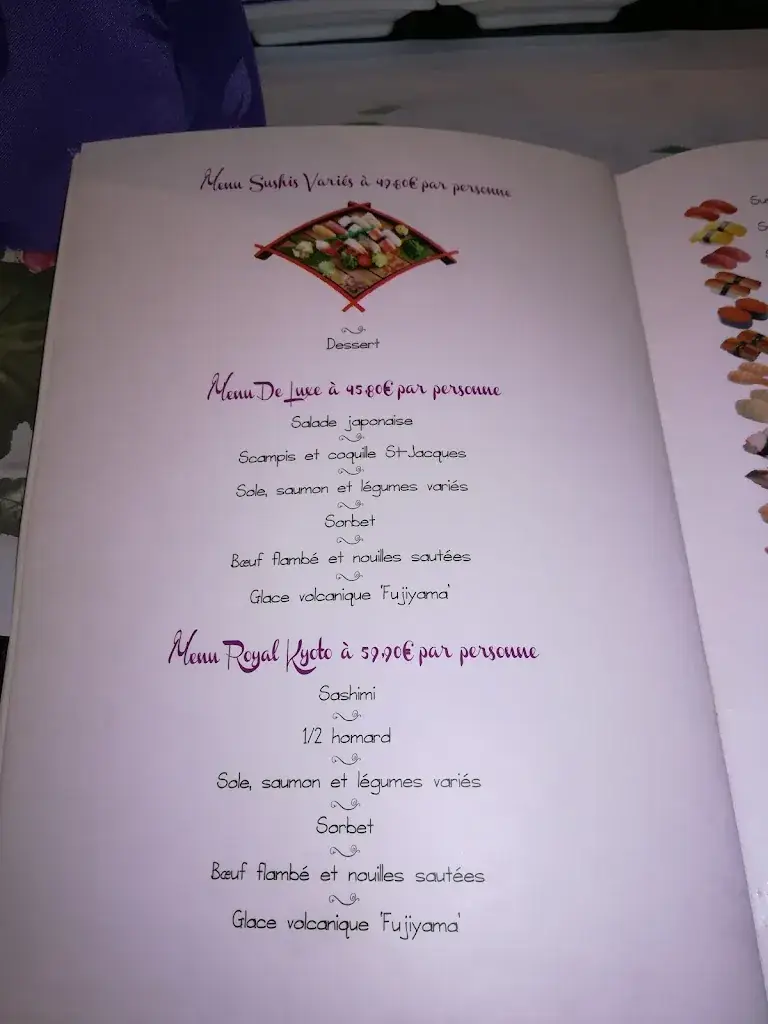 Menu Sushis Variés à par personne
Dessert
Menu De Luxe à 45,80€ par personne
Salade japonaise
Scampis et coquille St-Jacques
Sole, saumon et légumes variés
Sorbet
Bœuf flambé et nouilles sautées
Glace volcanique 'Fujiyama'
Menu Royal Kyoto à 59,90€ par personne
Sashimi
1/2 homard
Sole, saumon et légumes variés
Sorbet
Bœuf flambé et nouilles sautées
Glace volcanique 'Fujiyama'